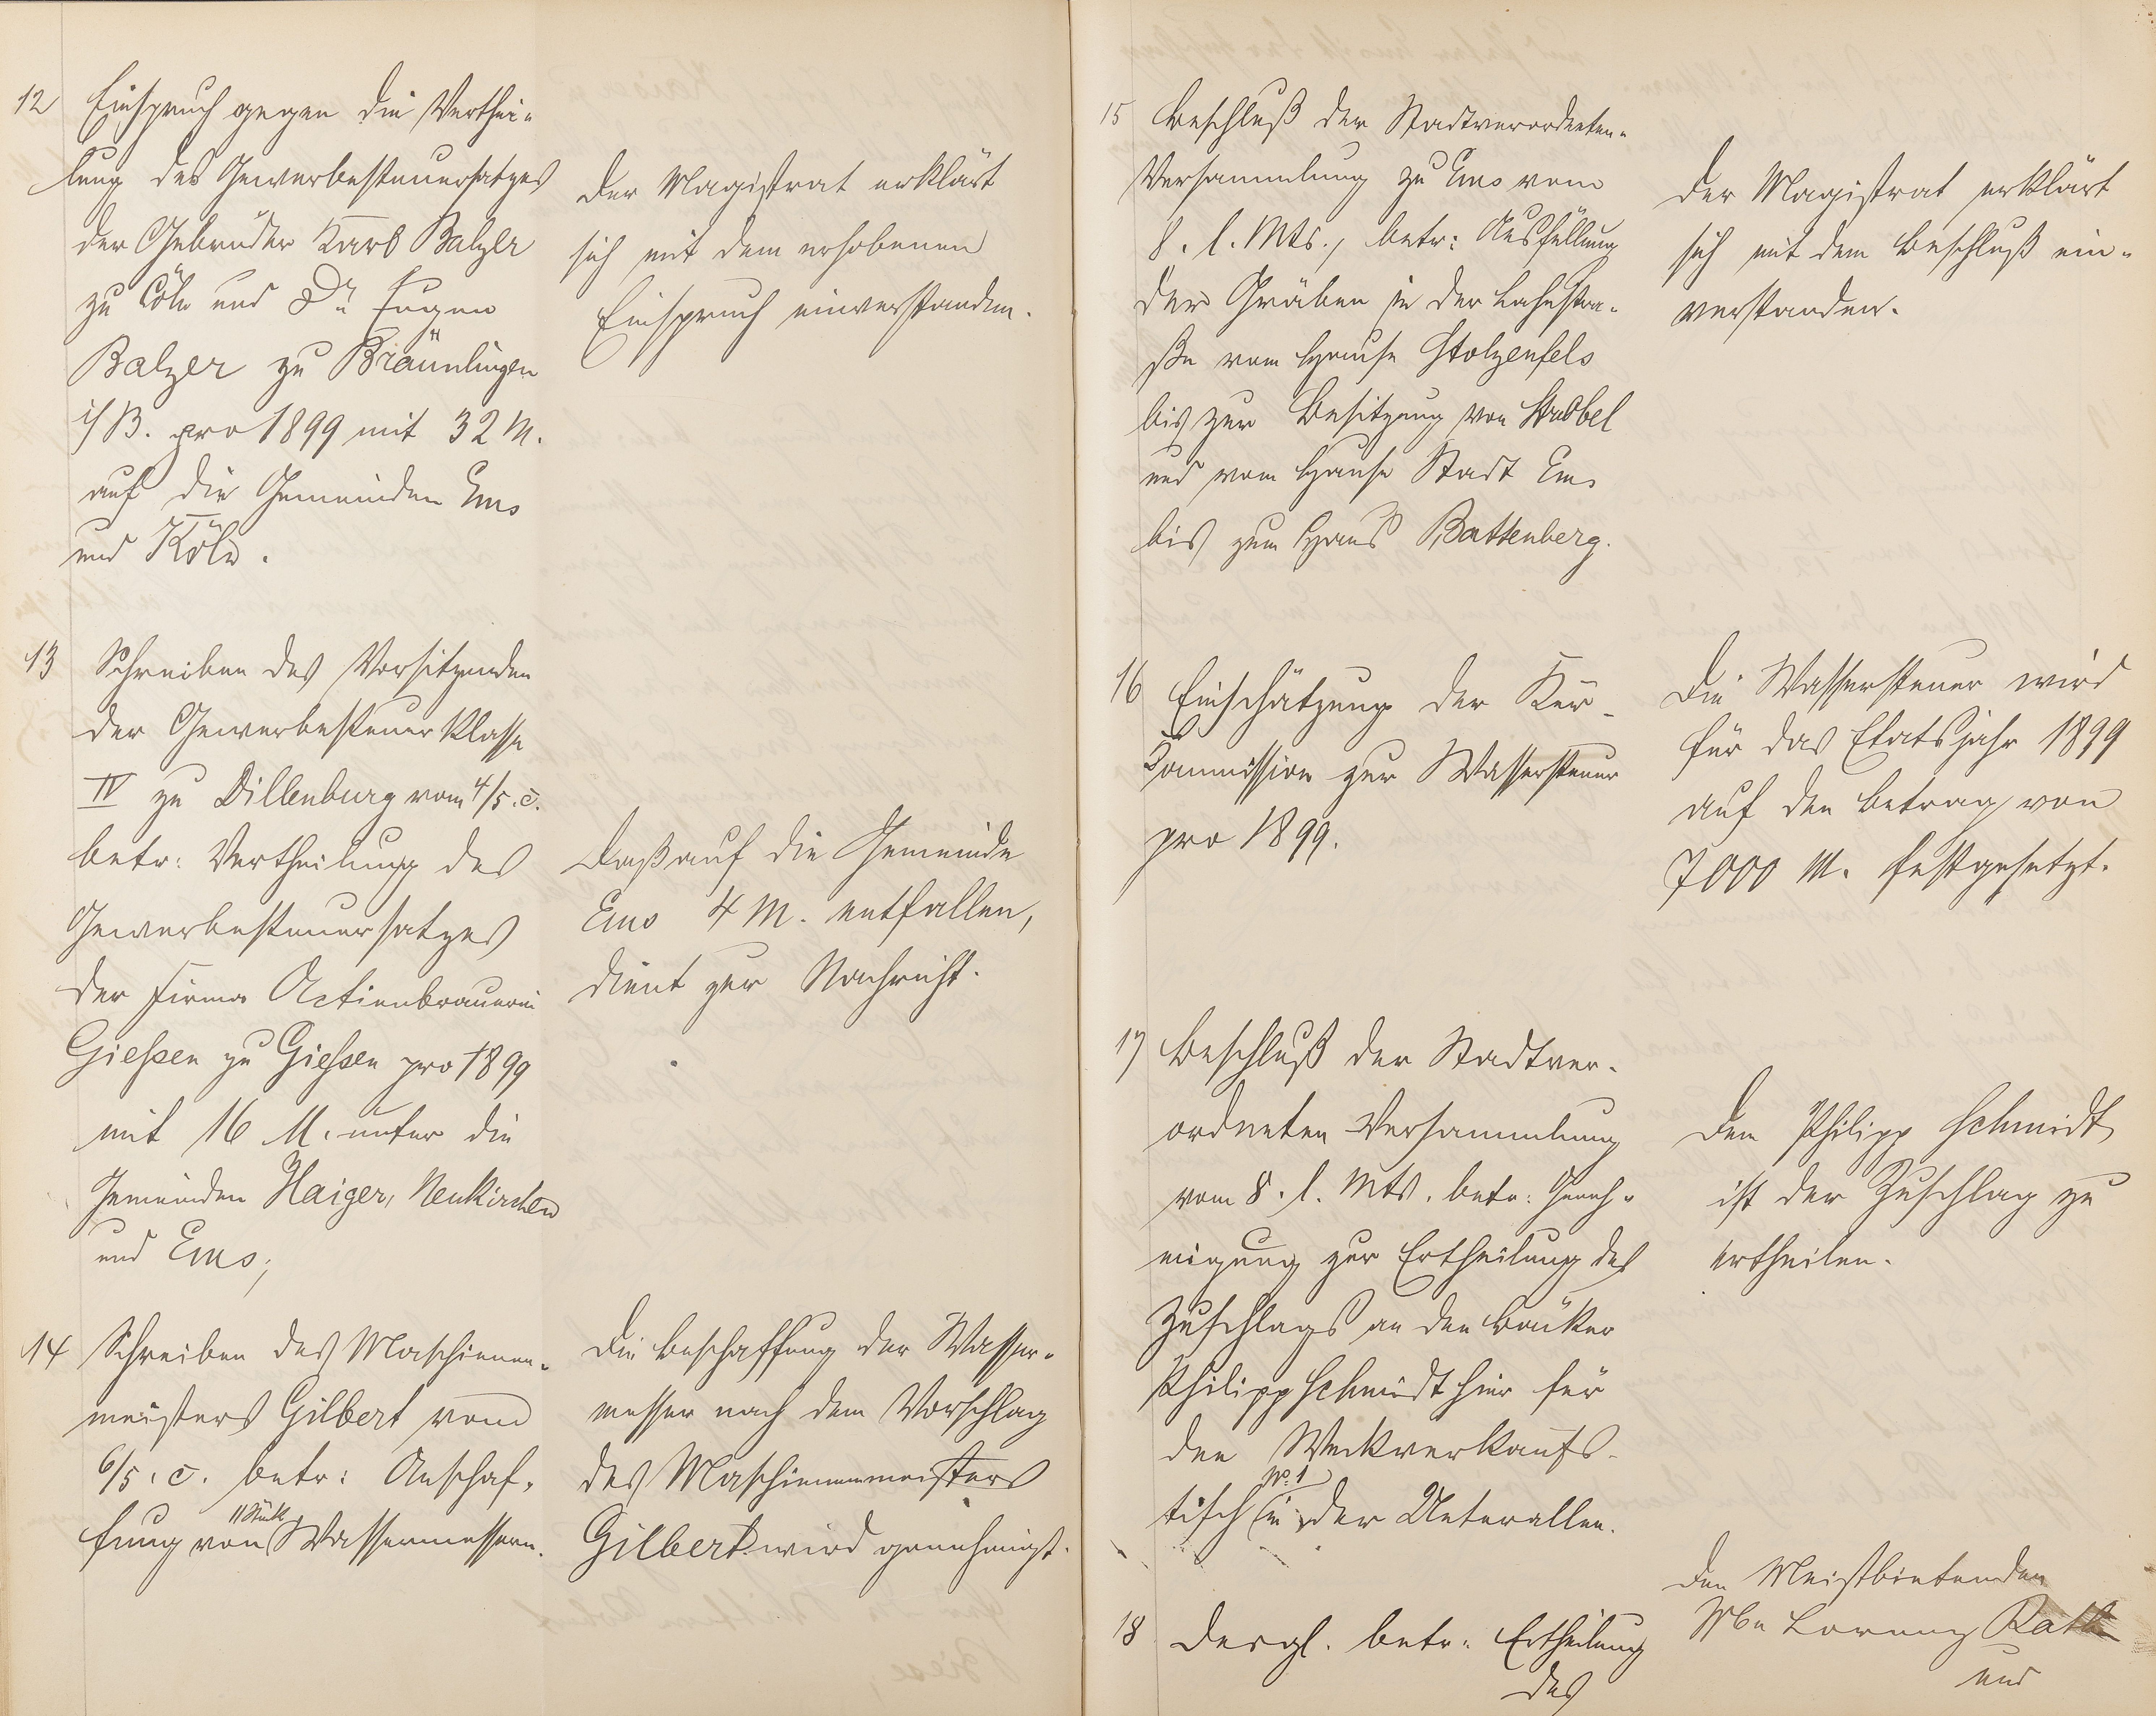 12 Einspruch gegen die Verthei-
lung des Gewerbesteuersatzes
der Gebrüder Karl Balzer
zu Cöln und Dr. Eugen
Balzer zu Bräunlingen
i/B. pro 1899 mit 32 M.
auf die Gemeinden Ems
und Köln.
Der Magistrat erklärt
sich mit dem erhobenen
Einspruch einverstanden.
13 Schreiben des Vorsitzenden
der Gewerbesteuerklasse
IV zu Dillenburg vom 4/5. c.
betr: Vertheilung des
Gewerbesteuersatzes
der Firma Actienbrauerei
Giessen zu Giessen pro 1899
mit 16 M. unter die
Gemeinden Haiger, Neukirchen
und Ems;
Daß auf die Gemeinde
Ems 4 M. entfallen,
dient zur Nachricht.
14 Schreiben des Maschienen-
meisters Gilbert vom
6/5. c. betr: Anschaf-
fung von 11 Stück Wassermessern.
Die Beschaffung der Wasser-
messer nach dem Vorschlag
des Maschienenmeisters
Gilbert wird genehmigt.
15 Beschluß der Stadtverordneten-
Versammlung zu Ems vom
8. l. Mts., betr: Ausfüllung
der Gräben in der Lahnstra-
ße vom Hause Stolzenfels
bis zur Besitzung von Strobel
und vom Hause Stadt Ems
bis zum Haus Battenberg.
Der Magistrat erklärt
sich mit dem Beschluß ein-
verstanden.
16 Einschätzung der Kur-
Kommission zur Wassersteuer
pro 1899.
Die Wassersteuer wird
für das Etatsjahr 1899
auf den Betrag von
7000 M. festgesetzt.
17 Beschluß der Stadtver-
ordneten-Versammlung
vom 8. l. Mts. betr: Geneh-
migung zur Ertheilung des
Zuschlags an den Bäcker
Philipp Schmidt hier für
den Weckverkaufs-
tisch No. 1 in der Unterallee.
Dem Philipp Schmidt
ist der Zuschlag zu
ertheilen.
18 Desgl. betr: Ertheilung
des
Den Meistbietenden
Wbe Lorenz Rath
und